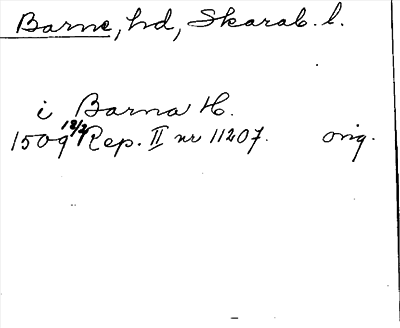 Barne, hd, Skarab. l.
i Barna H.
1509 12/2 Rep. II nr 11207. orig.